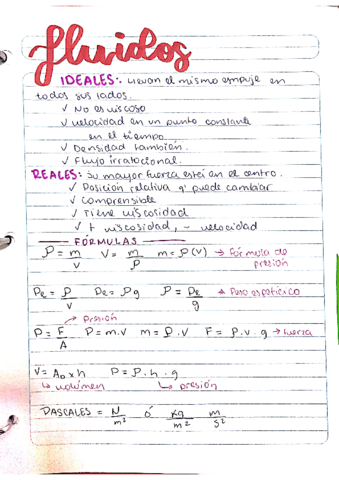 fluidos
IDEALES:. Llevan el mismo empuje en
todos sus lados.
✓ No es viscoso
✓ velocidad en un punto constante
en el tiempo
✓ Densidad también.
✓ Flujo irratocional.
REALES: Su mayor fuerza estei en el centro.
✓ Posición relativa q' puede cambiar
✓ Comprensible
✓ Tiene viscosidad
✓ + viscosidad, - velocidad
FÓRMULAS
ρ = m/v V = m/ρ m = ρ(v) → Fórmula de
presión
Pe = P/v Pe = ρg ρ = Pe/g → Peso específico
→ Presión
P = F/A P = m.v m = ρ.V F = ρ.v.g → fuerza
V = Ao x h P = ρ.h.g
↳ volúmen ↳ presión
PASCALES = N/m² ó kg/m² m/s²